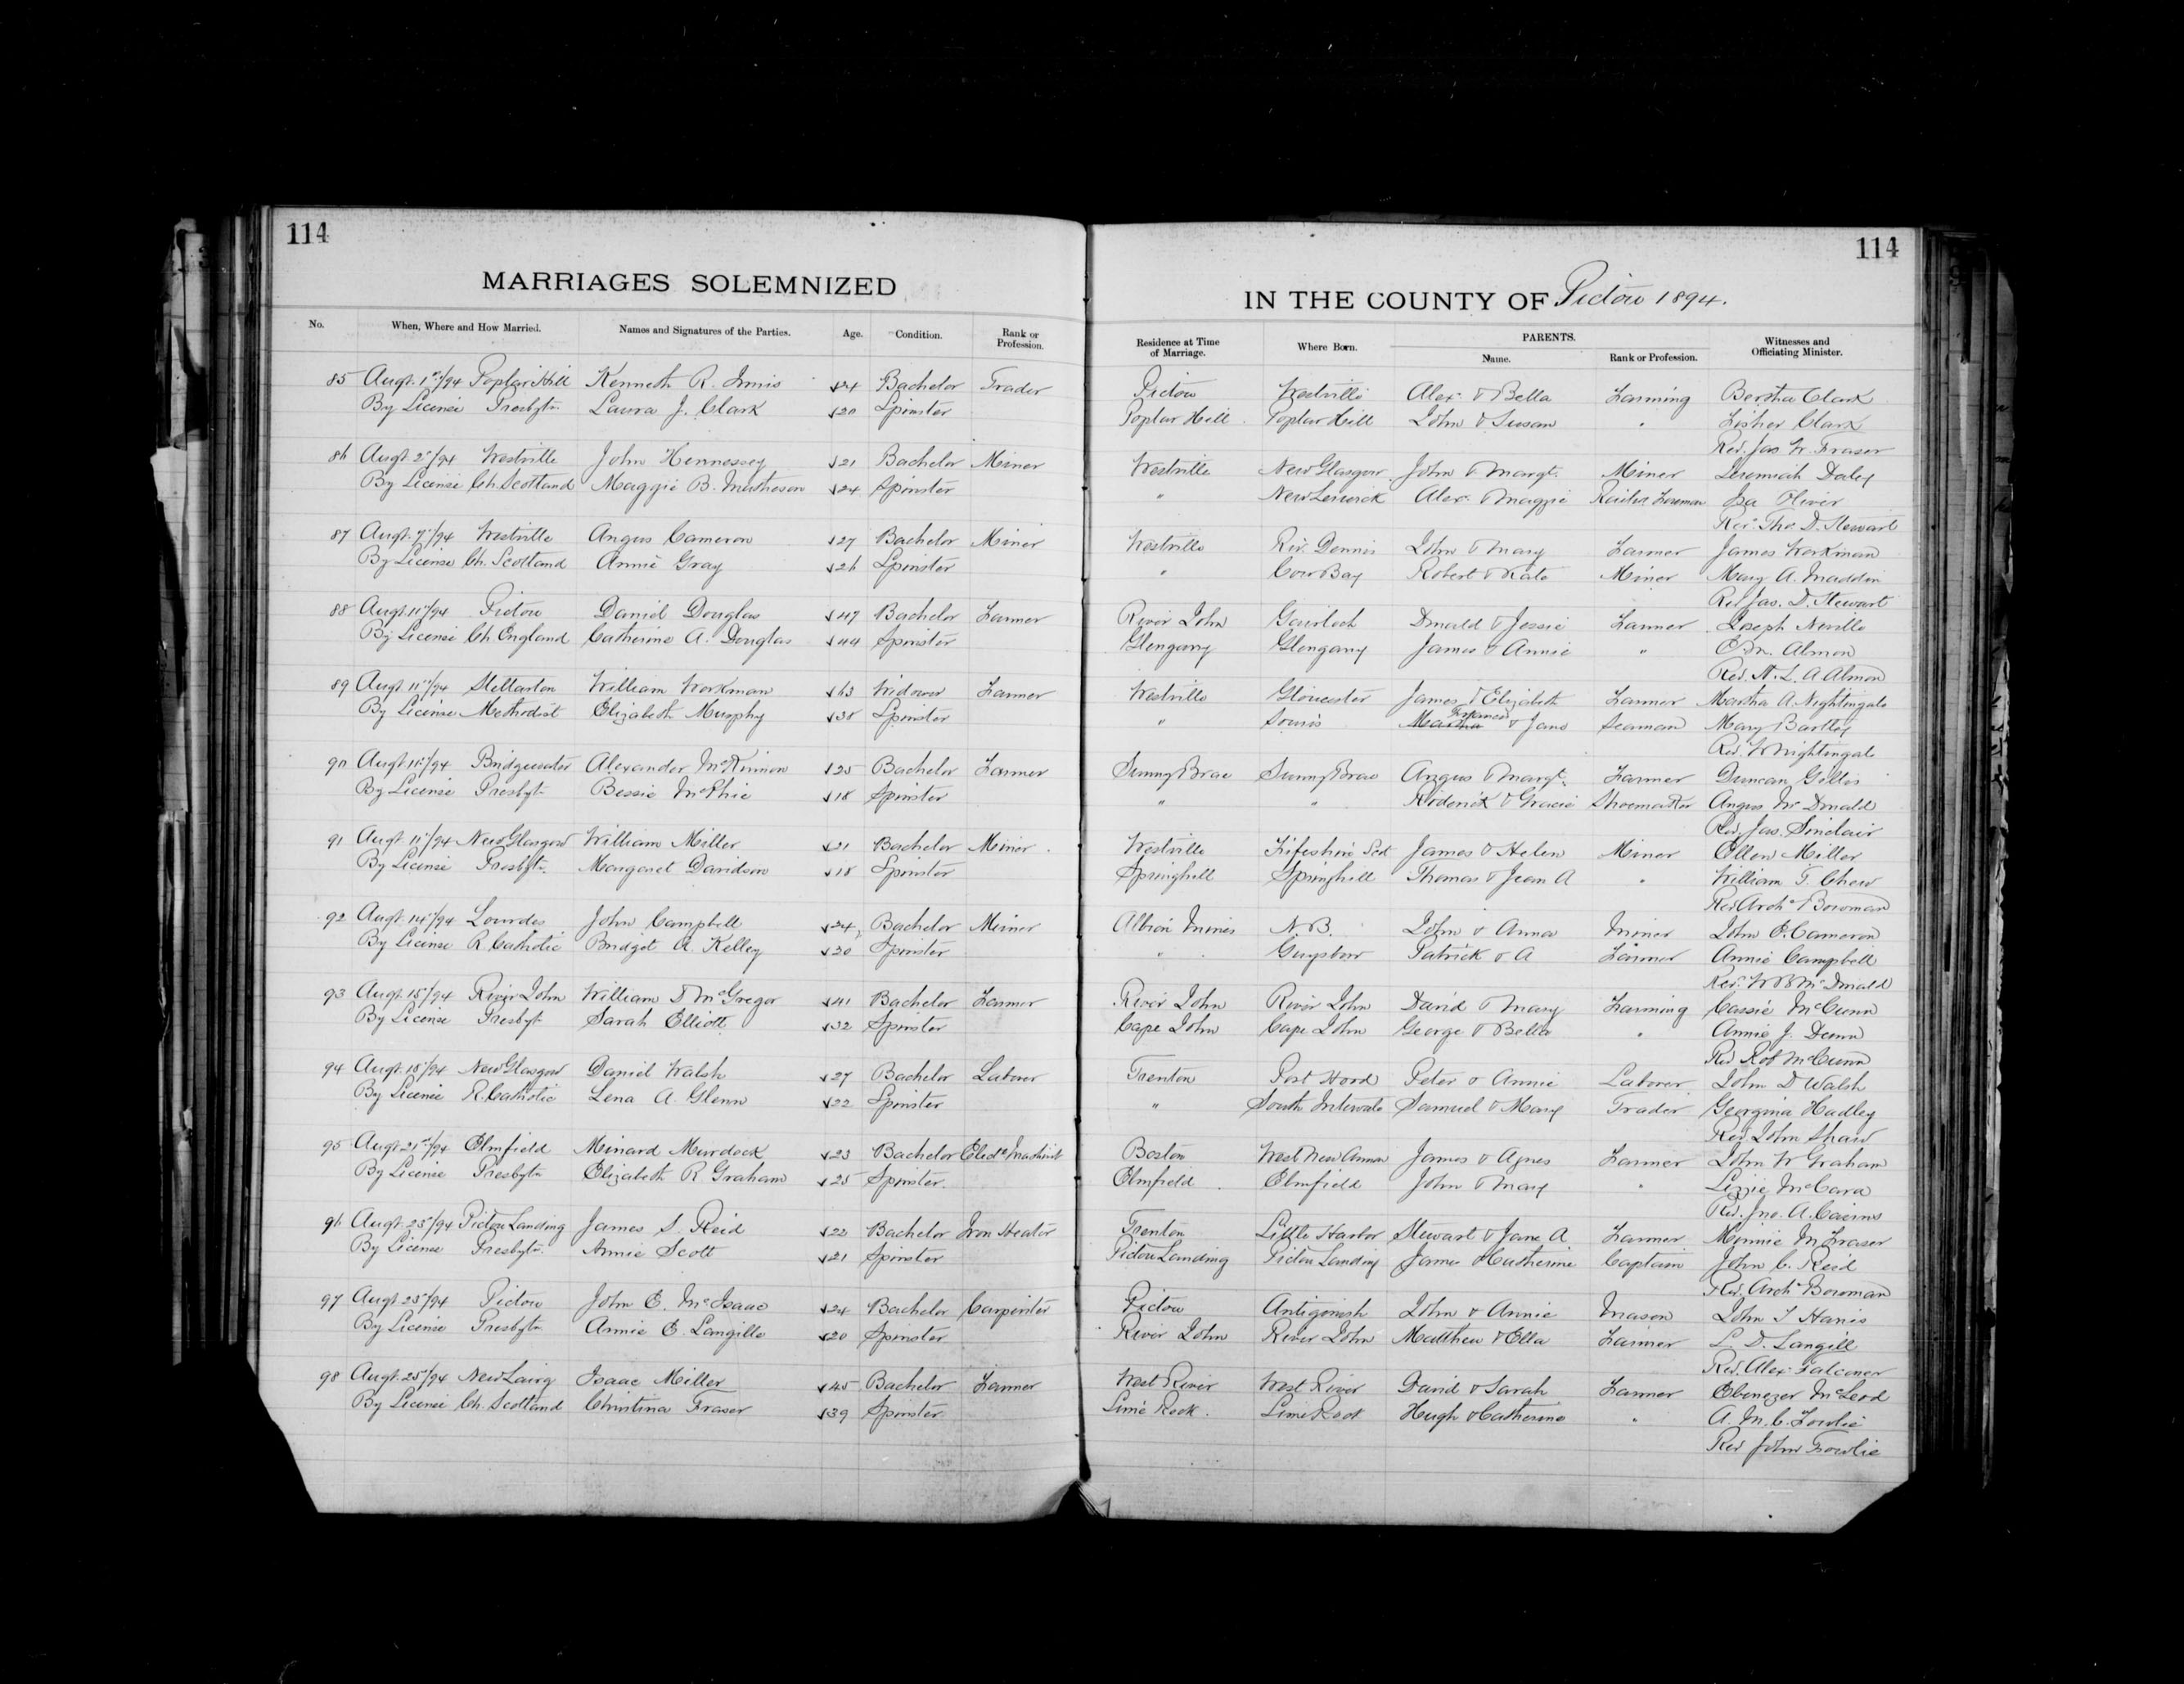 114
MARRIAGES SOLEMNIZED
No. When, Where and How Married. Names and Signatures of the Parties. Age. Condition. Rank or Profession.
85 Augt. 1st/94 Poplar Hill Kenneth R. Innis 24 Bachelor Trader
By License Presbytn. Laura J. Clark 20 Spinster
86 Augt 2"/94 Westville John Hennessey 21 Bachelor Miner
By License Ch. Scottand Maggie B. Matheson 24 Spinster
87 Augt. 7"/94 Westville Angus Cameron 27 Bachelor Miner
By License Ch. Scotland Annie Gray 26 Spinster
88 Augt. 11"/94 Pictou Daniel Douglas 47 Bachelor Farmer
By License Ch. England Catherine A. Douglas 44 Spinster
89 Augt. 11"/94 Stellarton William Workman 63 Widower Farmer
By License Methodist Elizabeth Murphy 38 Spinster
90 Augt 11"/94 Bridgewater Alexander McKinnon 25 Bachelor Farmer
By License Presbyt. Bessie McPhie 18 Spinster
91 Augt 11"/94 New Glasgow William Miller 21 Bachelor Miner
By License Presbytn. Margaret Davidson 18 Spinster
92 Augt. 14"/94 Lourdes John Campbell 24 Bachelor Miner
By License R. Catholic Bridget A. Kelley 20 Spinster
93 Augt. 15"/94 River John William D McGregor 41 Bachelor Farmer
By License Presbyt. Sarah Elliott 32 Spinster
94 Augt. 18"/94 New Glasgow Daniel Walsh 27 Bachelor Laborer
By License R. Catholic Lena A. Glenn 22 Spinster
95 Augt 21st/94 Elmfield Minard Murdock 23 Bachelor Elect. Machinist
By License Presbytn Elizabeth R Graham 25 Spinster.
96 Augt. 23"/94 Pictou Landing James S. Reid 22 Bachelor Iron Heater
By License Presbytn. Annie Scott 21 Spinster
97 Augt 25"/94 Pictou John E. McIsaac 24 Bachelor Carpenter
By License Presbytn Annie E. Langille 20 Spinster
98 Augt. 25"/94 New Lairg Isaac Miller 45 Bachelor Farmer
By License Ch. Scotland Christina Fraser 39 Spinster
114
IN THE COUNTY OF Pictou 1894.
Residence at Time of Marriage. Where Born. PARENTS. Name. Rank or Profession. Witnesses and Officiating Minister.
Pictou Westville Alexr. & Bella Farming Bertha Clark
Poplar Hill Poplar Hill John & Susan " Fisher Clark
Rev. Jas W. Fraser
Westville New Glasgow John & Margt. Miner Jeremiah Daley
" New Lenerick Alexr. & Maggie Railwr. Foreman Isa Oliver
Rev. Tho. D. Stewart
Westville Riv. Dennis John & Mary Farmer James Workman
" Cow Bay Robert & Kate Miner Mary A. Maddin
Rev Jas. D. Stewart
River John Gairloch Donald & Jessie Farmer Joseph Neville
Glengarry Glengarry James & Annie " E. M. Almon
Rev. H. L. A Almon
Westville Gloucester James & Elizabeth Farmer Martha A. Nightingale
" Souris Martha & Jane Seaman Mary Bartley
Rev. W Nightingale
Sunny Brae Sunny Brae Angus & Margt. Farmer Duncan Gillis
" " Roderick & Gracie Shoemaker Angus McDonald
Rev. Jas. Sinclair
Westville Fifeshire Scot James & Helen Miner Ellen Miller
Springhill Springhill Thomas & Jean A " William T. Chew
Rev Archd Bowman
Albion Mines N.B. John & Anna Miner John E. Cameron
" Guysboro Patrick & A Farmer Annie Campbell
Rev. W B McDonald
River John River John David & Mary Farming Cassie McCunn
Cape John Cape John George & Bella " Annie J. Dunn
Rev Rob McCunn
Trenton Port Hood Peter & Annie Laborer John D Walsh
" South Intervale Samuel & Mary Trader Georgina Hadley
Rev. John Shaw
Boston West New Annan James & Agnes Farmer John W Graham
Elmfield Elmfield John & Mary " Lizzie McCara
Rev. Jno. A. Cairns
Trenton Little Harbor Stewart & Jane A Farmer Minnie M. Fraser
Pictou Landing Pictou Landing James & Catherine Captain John C. Reid
Rev. Archd Bowman
Pictou Antigonish John & Annie Mason John T Harris
River John River John Matthew & Ella Farmer L. D. Langill
Rev. Alex Falconer
West River West River David & Sarah Farmer Ebenezer McLeod
Lime Rock Lime Rock Hugh & Catherine " A. M. C. Fowlie
Rev John Fowlie